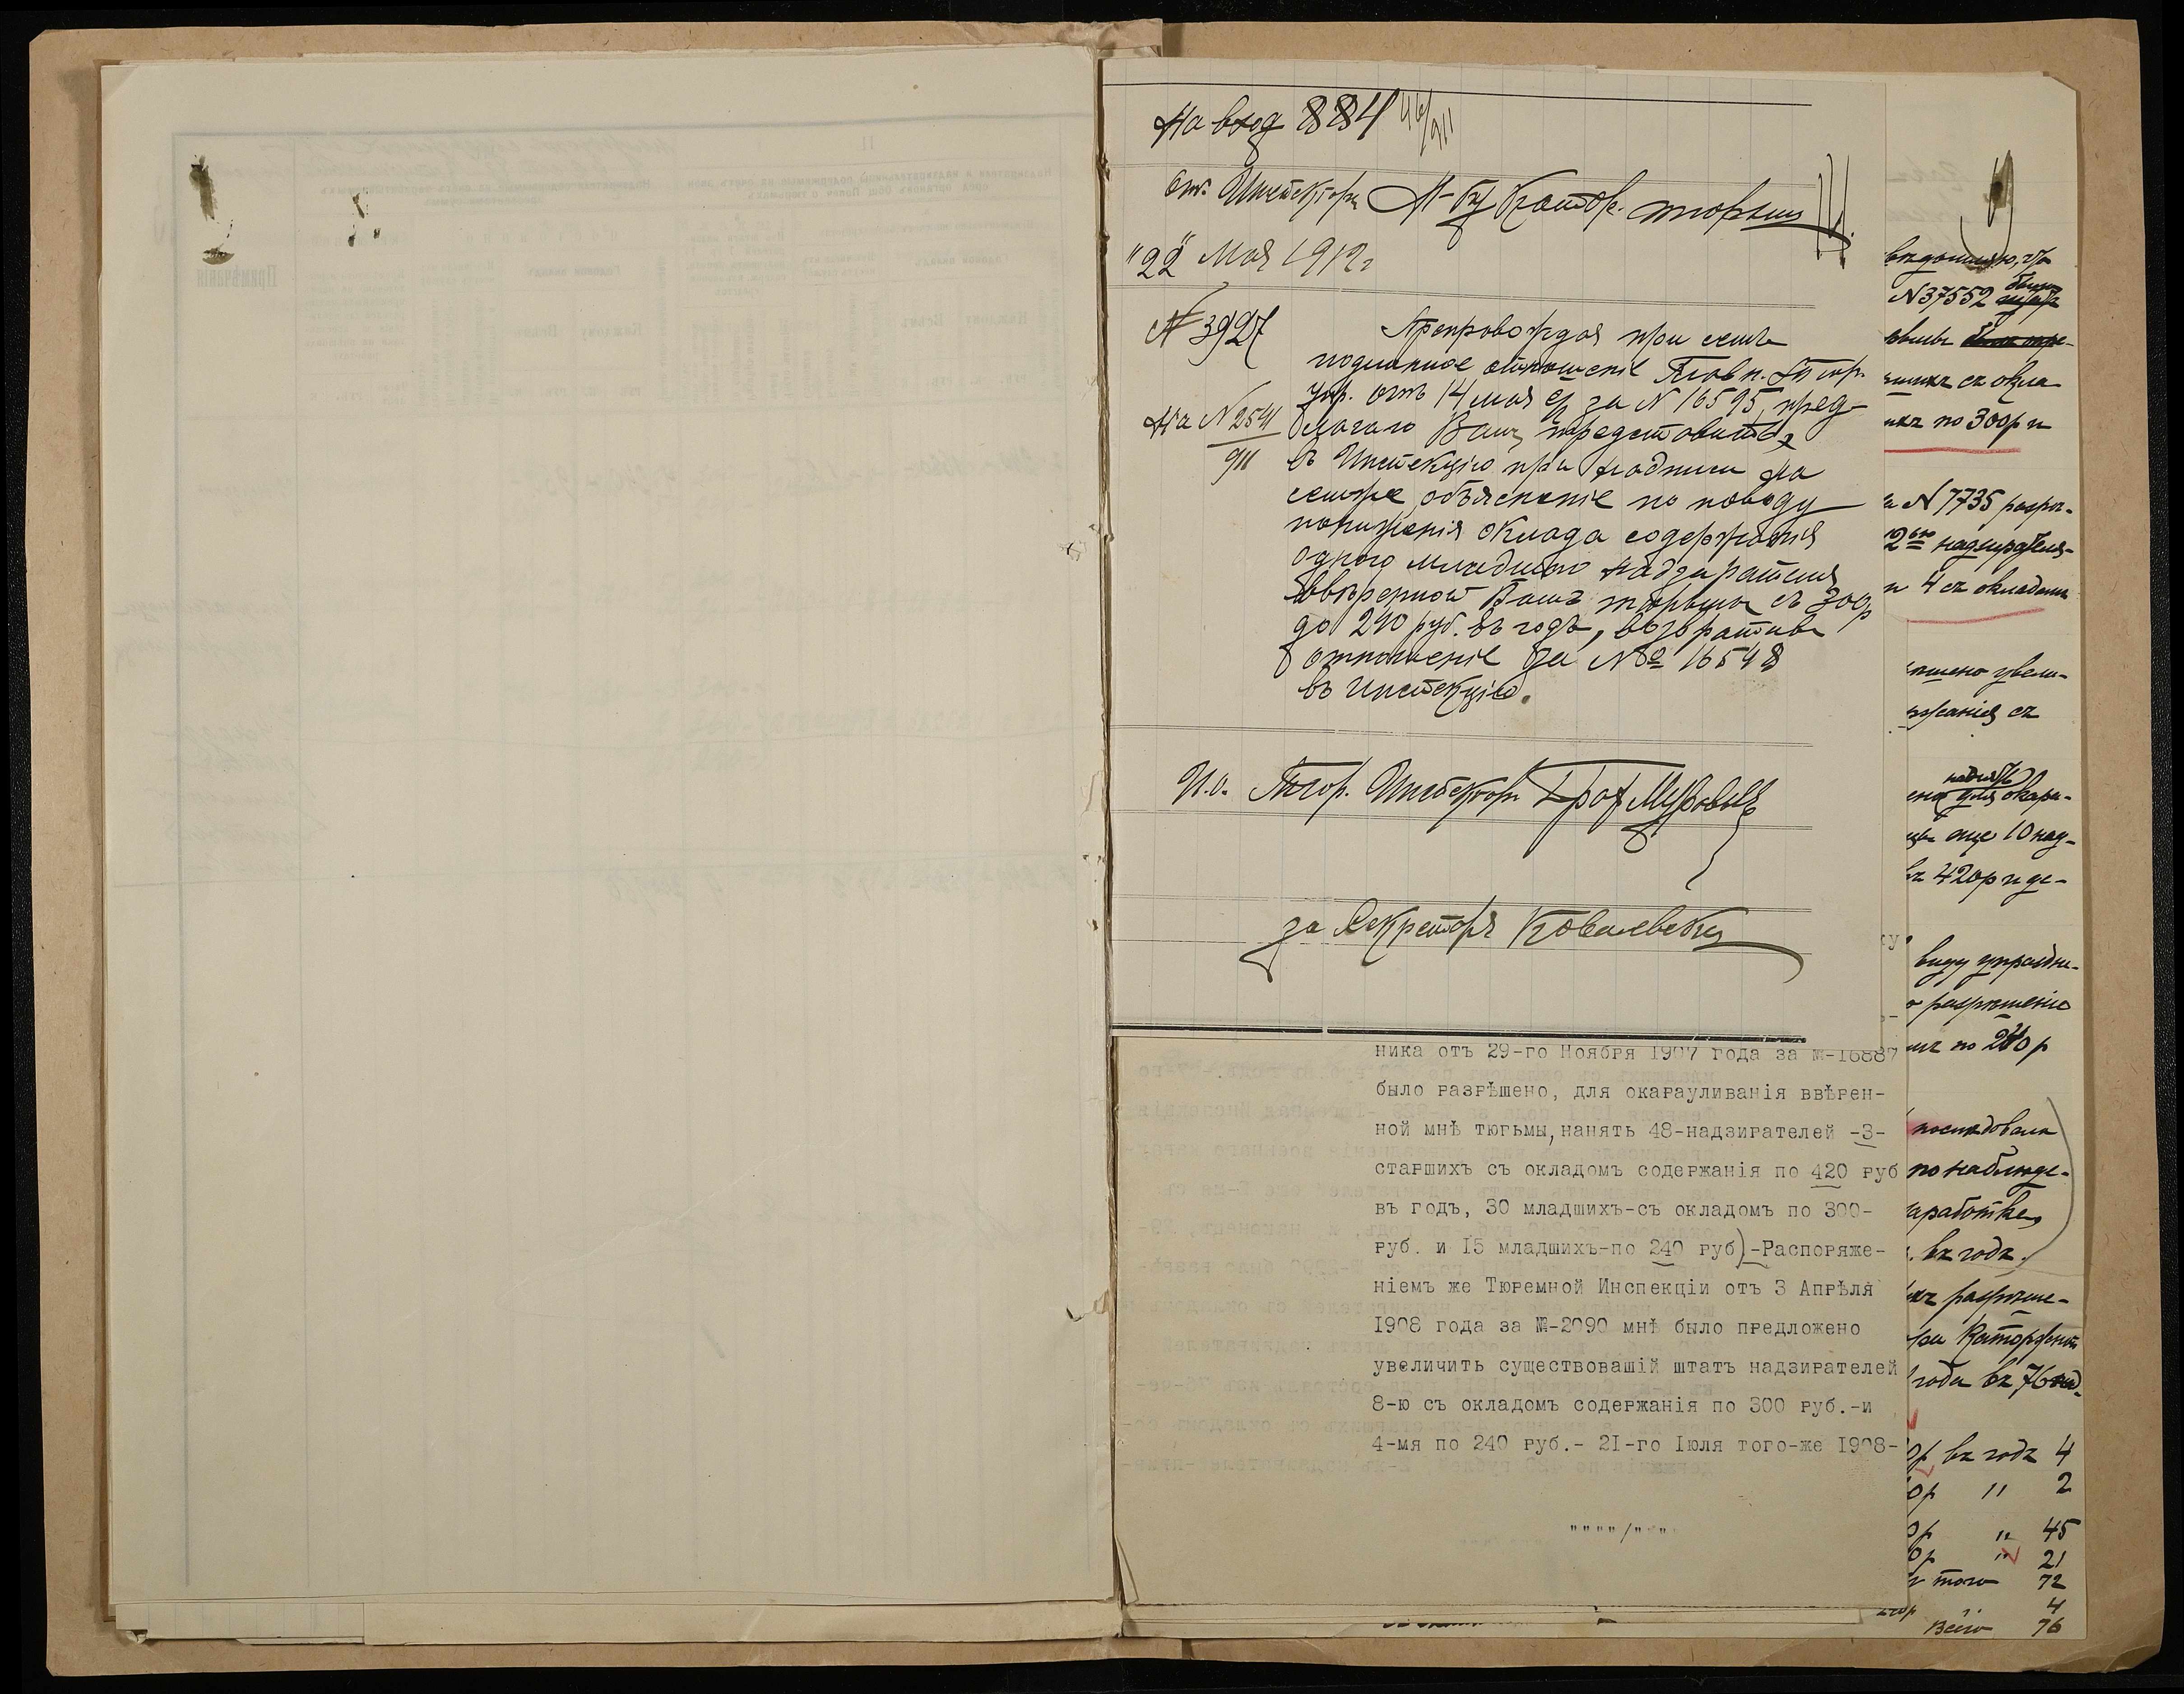 На вход 884 46/911
От Инспектора
"22" Мая 1912 г
№ 3927
На № 2541/911
Препровождая при семъ
подлинное отношеніе Главн. Тюр.
Упр. отъ 14 мая с/г за № 16595, пред-
лагаю Вамъ представить
въ Инспекцію при надписи на
семъ же объясненіе по поводу
пониженія оклада содержанія
одного младшаго надзирателя
ввѣренной Вамъ тюрьмы съ 300 р
до 240 руб. въ годъ, возвративъ
отношеніе за № 16548
въ Инспекцію.
И.о. Тюр. Инспектора Граф
за Секретаря Ковалевскій
ника отъ 29-го Ноября 1907 года за №-16887
было разрѣшено, для окарауливанія ввѣрен-
ной мнѣ тюрьмы, нанять 48-надзирателей -3-
старшихъ съ окладомъ содержанія по 420 руб
въ годъ, 30 младшихъ-съ окладомъ по 300-
руб. и 15 младшихъ-по 240 руб)-Распоряже-
ніемъ же Тюремной Инспекціи отъ 3 Апрѣля
1908 года за №-2090 мнѣ было предложено
увеличить существовашій штатъ надзирателей
8-ю съ окладомъ содержанія по 300 руб.-и
4-мя по 240 руб.- 21-го Іюля того-же 1908-
""""/""""
N 37552
съ окла
по 300 р и
N 7735 разрѣ-
2ью надзирателя-
и 4 съ окладомъ
шено увели-
ржанія съ
для окара-
еще 10 над-
420 р и де-
виду упраздне-
разрѣшеніе
по 240 р
послѣдовало
по наблюде-
заработкѣ,
въ годъ.
разрѣше-
при Каторжной
года въ 76 над.
0р въ годъ 4
0р " 2
0р " 45
0р " 21
того 72
4
Всего 76